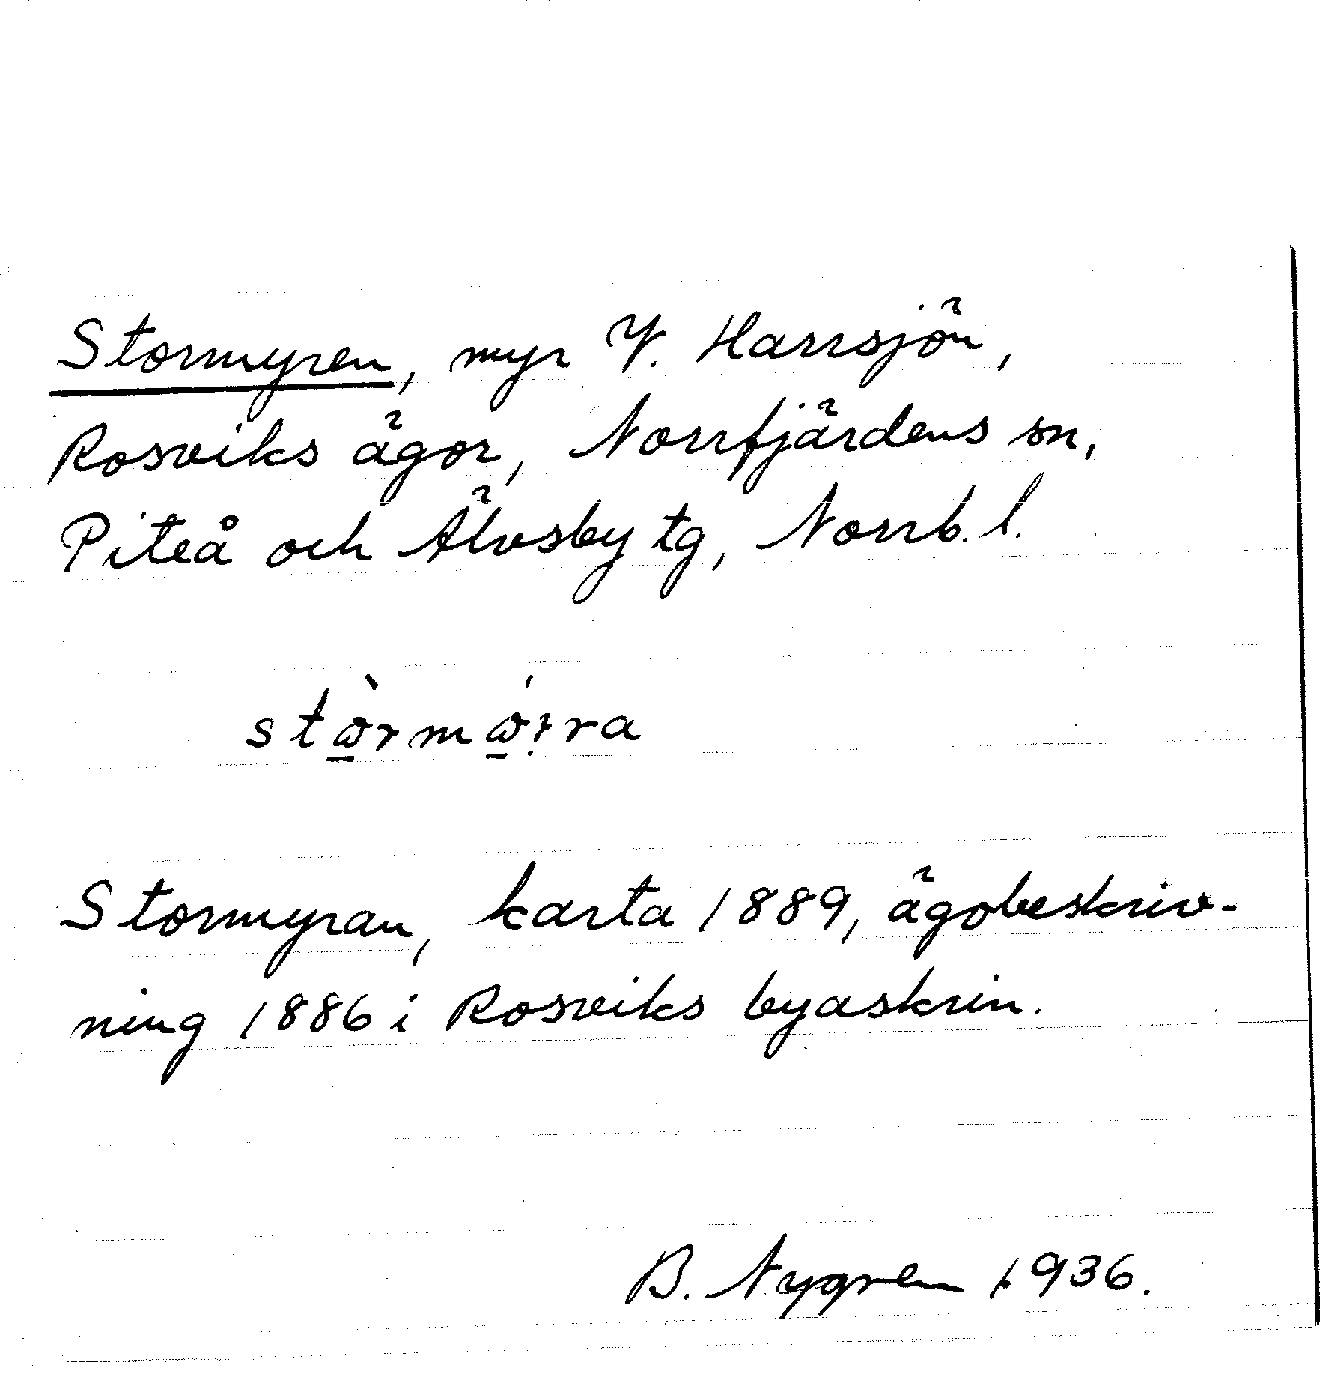 Stormyren, myr V. Harrsjön,
Rosviks ägor, Norrfjärdens sn,
Piteå och Älvsby tg, Norrb. l.
Stormyran, karta 1889, ägobeskriv-
ning 1886 i Rosviks byaskrin.
B. Nygren 1936.